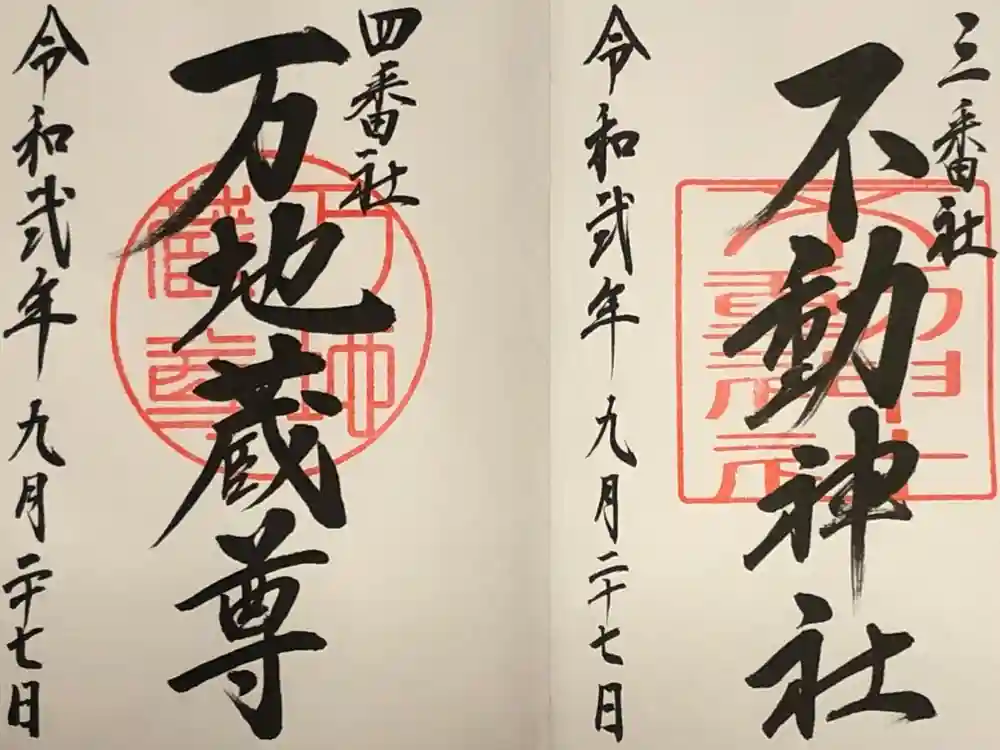 三番社
不動神社
令和弐年九月二十七日
四番社
万地蔵尊
令和弐年九月二十七日
不動神社
万地蔵尊